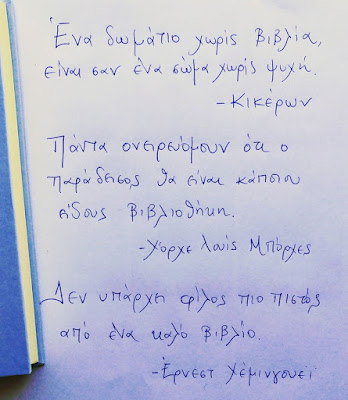 Ένα δωμάτιο χωρίς βιβλία,
είναι σαν ένα σώμα χωρίς ψυχή.
-Κικέρων
Πάντα ονειρευόμουν ότι ο
παράδεισος θα είναι κάποιου
είδους βιβλιοθήκη.
-Χόρχε Λουίς Μπόρχες
Δεν υπάρχει φίλος πιο πιστός
από ένα καλό βιβλίο.
-Έρνεστ Χέμινγουεϊ